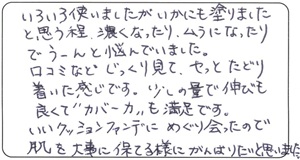 いろいろ使いましたがいかにも塗りました
と思う程、濃くなったり、ムラになったり
でうーんと悩んでいました。
口コミなどじっくり見て、やっとたどり
着いた感じです。少しの量で伸びも
良くて"カバー力"も満足です。
いいクッションファンデにめぐり会ったので
肌を大事に保てる様にがんばりたいと思いました